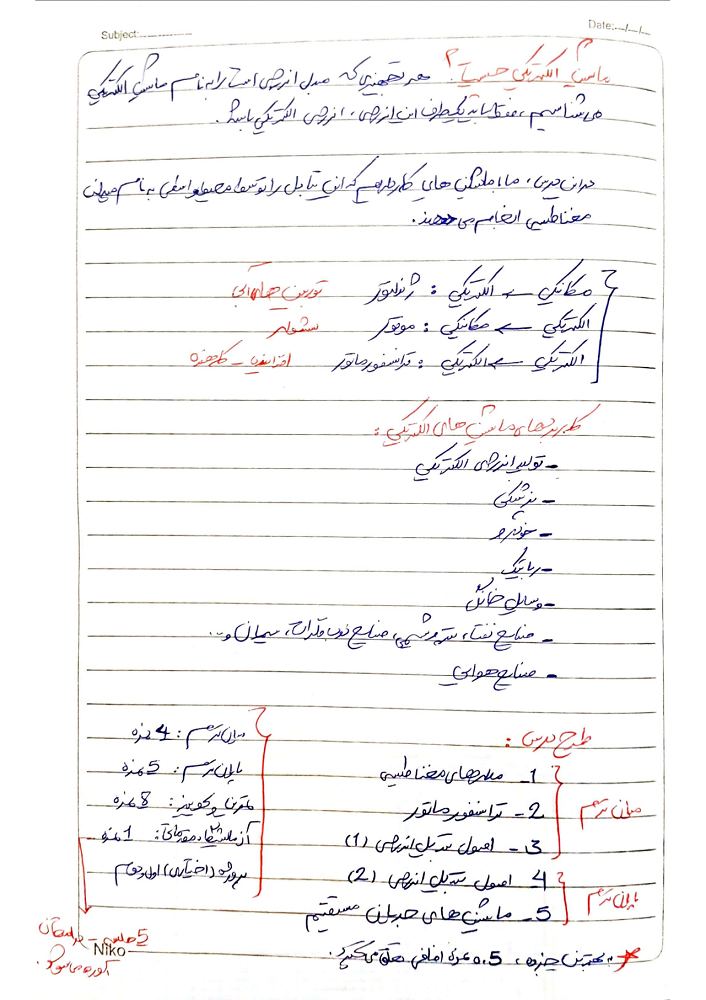 Subject: Date:
ماشین الکتریکی چیست؟ هر تجهیزی که مبدل انرژی است را به نام ماشین الکتریکی
می شناسیم، منتها باید یکطرف این انرژی، انرژی الکتریکی باشد.
در این درس، ما با ماشین های کار داریم که این تبدیل را توسط محیط واسطی به نام میدان
مغناطیسی انجام می دهند.
مکانیکی → الکتریکی : ژنراتور توربین های آبی
الکتریکی → مکانیکی : موتور سشوار
الکتریکی → الکتریکی : ترانسفورماتور افزاینده - کاهنده
کاربردهای ماشین های الکتریکی :
- تولید انرژی الکتریکی
- پزشکی
- خودرو
- رباتیک
- وسایل خانگی
- صنایع نفت، پتروشیمی، صنایع ذوب فلزات، سیمان و...
- صنایع هوایی
طرح درس :
میان ترم
1- مدارهای مغناطیسی
2- ترانسفورماتور
3- اصول تبدیل انرژی (1)
پایان ترم
4 اصول تبدیل انرژی (2)
5- ماشین های جریان مستقیم
میان ترم : 4 نمره
پایان ترم : 5 نمره
تمرین و کوییز : 8 نمره
آزمایشگاه مقدماتی : 1 نمره
پروژه (اختیاری)
5 جلسه - در امتحان
آورده می شود.
* بهترین جزوه، 0.5 نمره اضافی خلق می کند.
Niko